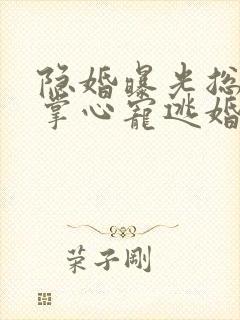 隐婚曝光总
掌心宠逃婚
荣子刚